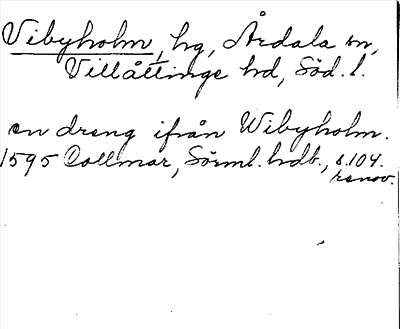 Vibyholm, hg, Årdala sn,
Villåttinge hd, Söd. l.
en dreng ifrån Wibyholm.
1595 Collmar, Sörml. hrdb., s. 104.
renov.